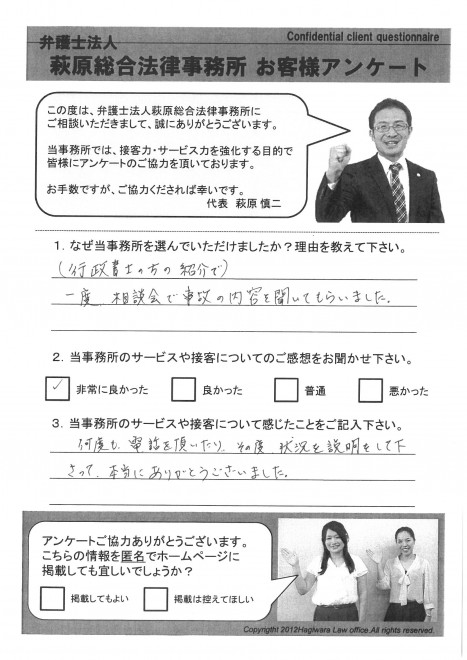 Confidential client questionnaire
弁護士法人
萩原総合法律事務所 お客様アンケート
この度は、弁護士法人萩原総合法律事務所に
ご相談いただきまして、誠にありがとうございます。
当事務所では、接客力・サービス力を強化する目的で
皆様にアンケートのご協力を頂いております。
お手数ですが、ご協力くだされば幸いです。
代表 萩原 慎二
1. なぜ当事務所を選んでいただけましたか？理由を教えて下さい。
(行政書士の方の紹介で)
一度、相談会で事故の内容を聞いてもらいました。
2. 当事務所のサービスや接客についてのご感想をお聞かせ下さい。
✓ 非常に良かった 良かった 普通 悪かった
3. 当事務所のサービスや接客について感じたことをご記入下さい。
何度も、電話を頂いたり、その度、状況を説明をして下
さって、本当にありがとうございました。
アンケートご協力ありがとうございます。
こちらの情報を匿名でホームページに
掲載しても宜しいでしょうか？
掲載してもよい 掲載は控えてほしい
Copyrigtht 2012Hagiwara Law office.All rights reserved.